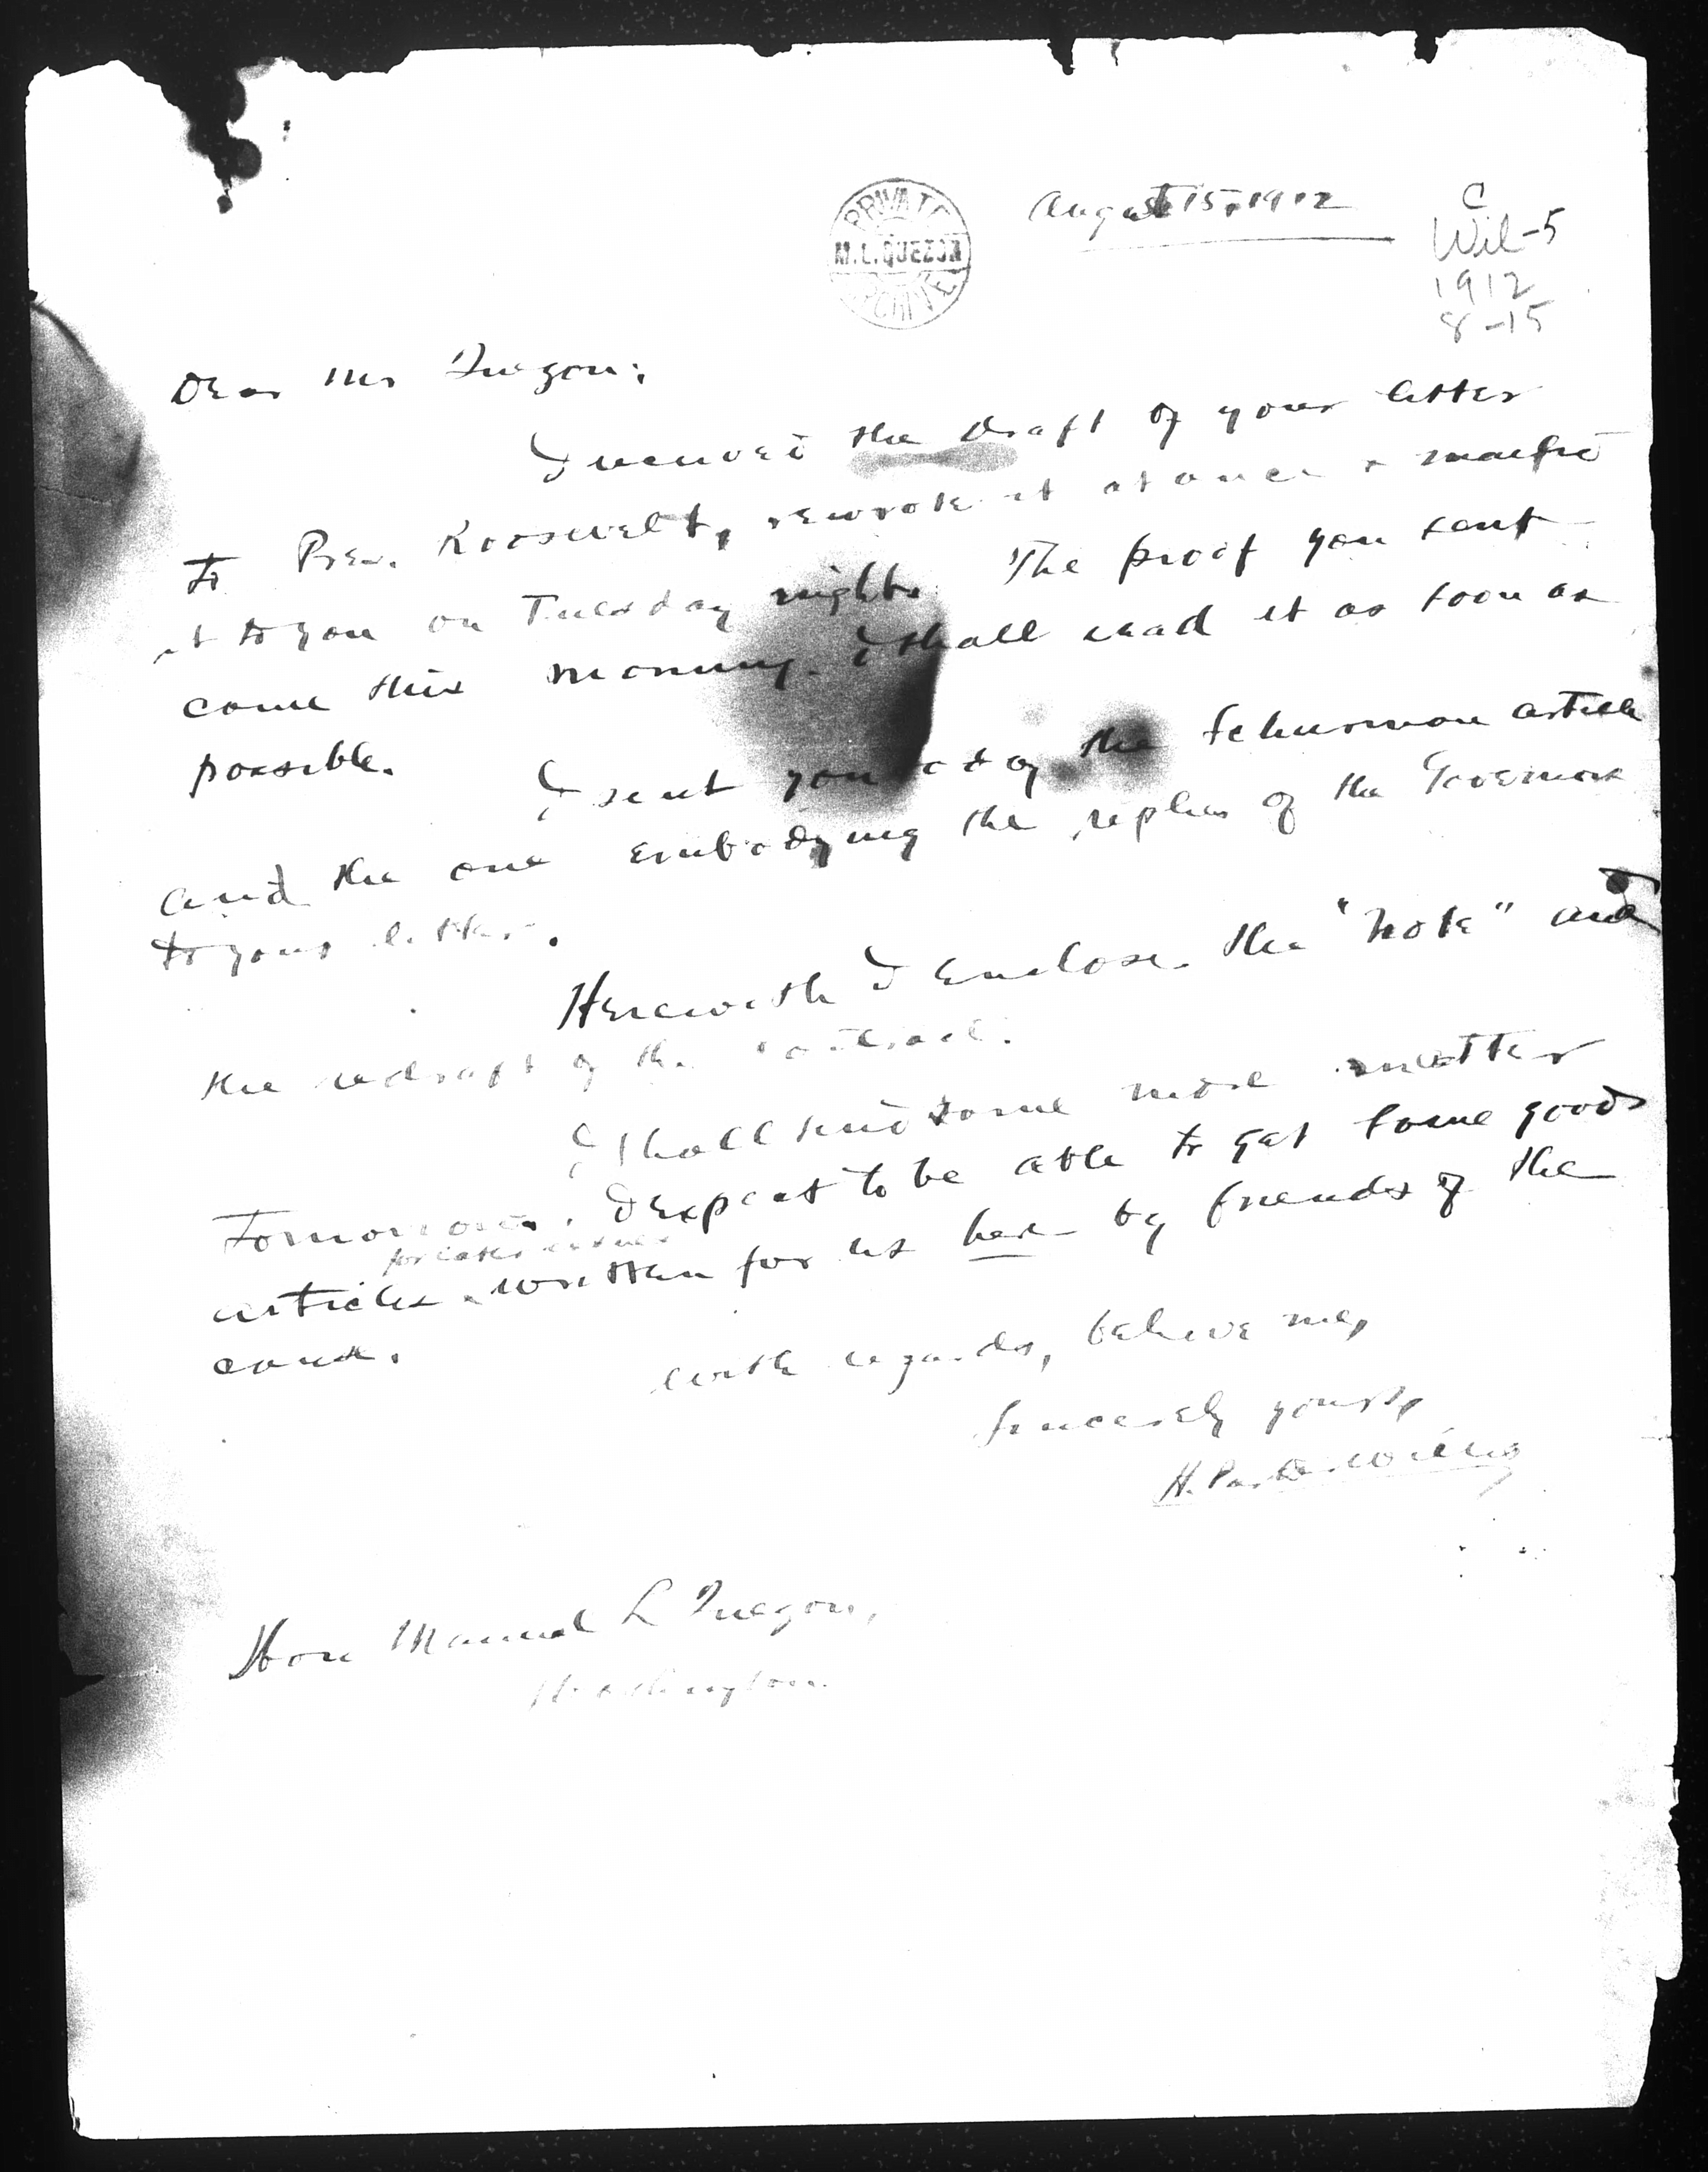 PRIVATE
M. L. QUEZON
ARCHIVE
August 15, 1912
C
Wil-5
1912
8-15
Dear Mr Quezon:
I received the draft of your letter
to Pres. Roosevelt, rewrote it at once & mailed
it to you on Tuesday night. The proof you sent
came this morning. I shall read it as soon as
possible.
I sent you today the Schurman article
and the one embodying the replies of the Governors
to your letter.
Herewith I enclose the "note" and
the redraft of the contract.
I shall send some more matter
Tomorrow. I expect to be able to get some good
for later issues
articles written for us here by friends of the
cause.
With regards, believe me,
Sincerely yours,
H. Parker Willis
Hon Manuel L Quezon,
Washington.